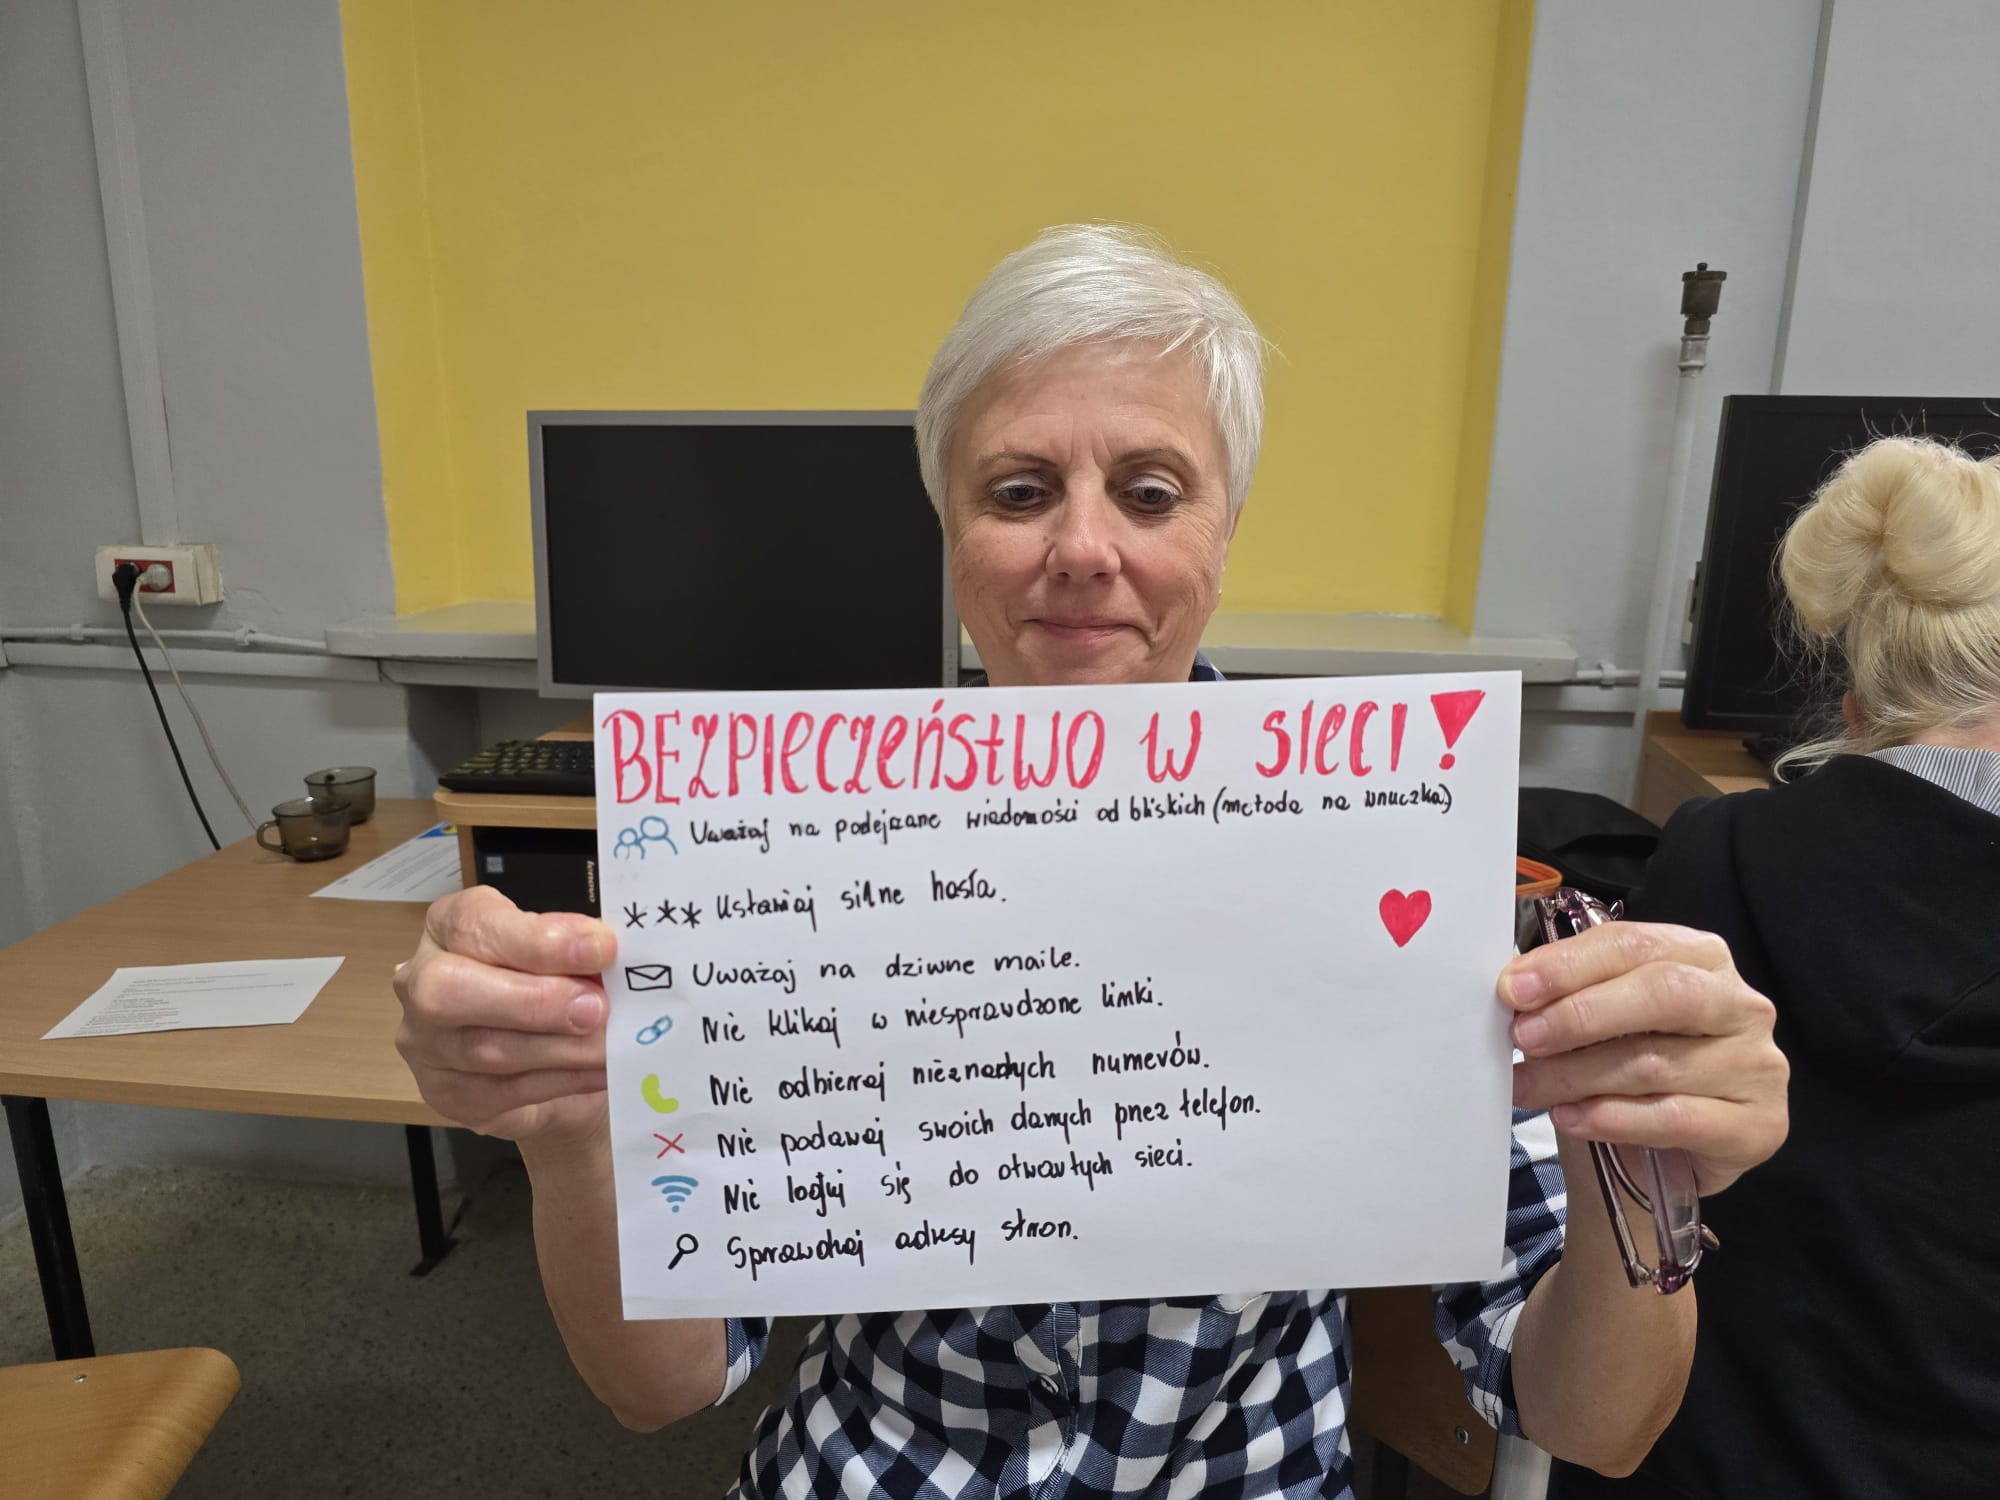 BEZPIECZEŃSTWO W SIECI!
Uważaj na podejrzane wiadomości od bliskich (metoda na wnuczka)
*** Ustawiaj silne hasła.
Uważaj na dziwne maile.
Nie klikaj w niesprawdzone linki.
Nie odbieraj nieznanych numerów.
Nie podawaj swoich danych przez telefon.
Nie loguj się do otwartych sieci.
Sprawdzaj adresy stron.
lenovo